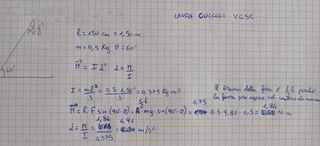 LAURA GUCCOLI V CSG
l = 150 cm = 1,50 m
m = 0,5 Kg θ = 60°
M = I α α = M/I
I = ml²/3 = 0,5·1,50²/3 = 0,375 Kg m²
Il braccio della forza è ½ l perché
la forza peso agisce nel
M = R·F sin(90°-θ) = mg·sin(90°-θ) = 0,75 0,5·9,81·0,5 = 1,84 N m
α = M/I = 1,84/0,375 = 4,91
60°